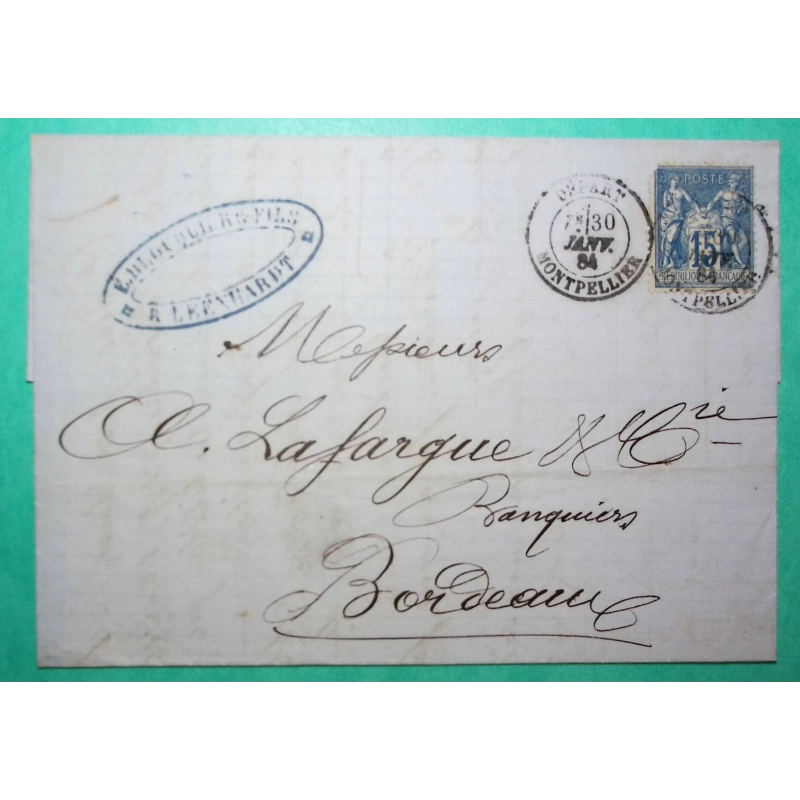 & FILS
LEENHARDT
DEPART
30
JANV.
84
MONTPELLIER
POSTE
15
REPUBLIQUE FRANCAISE
MONTPELLIER
Messieurs
A. Lafargue & Cie
Banquiers
Bordeaux